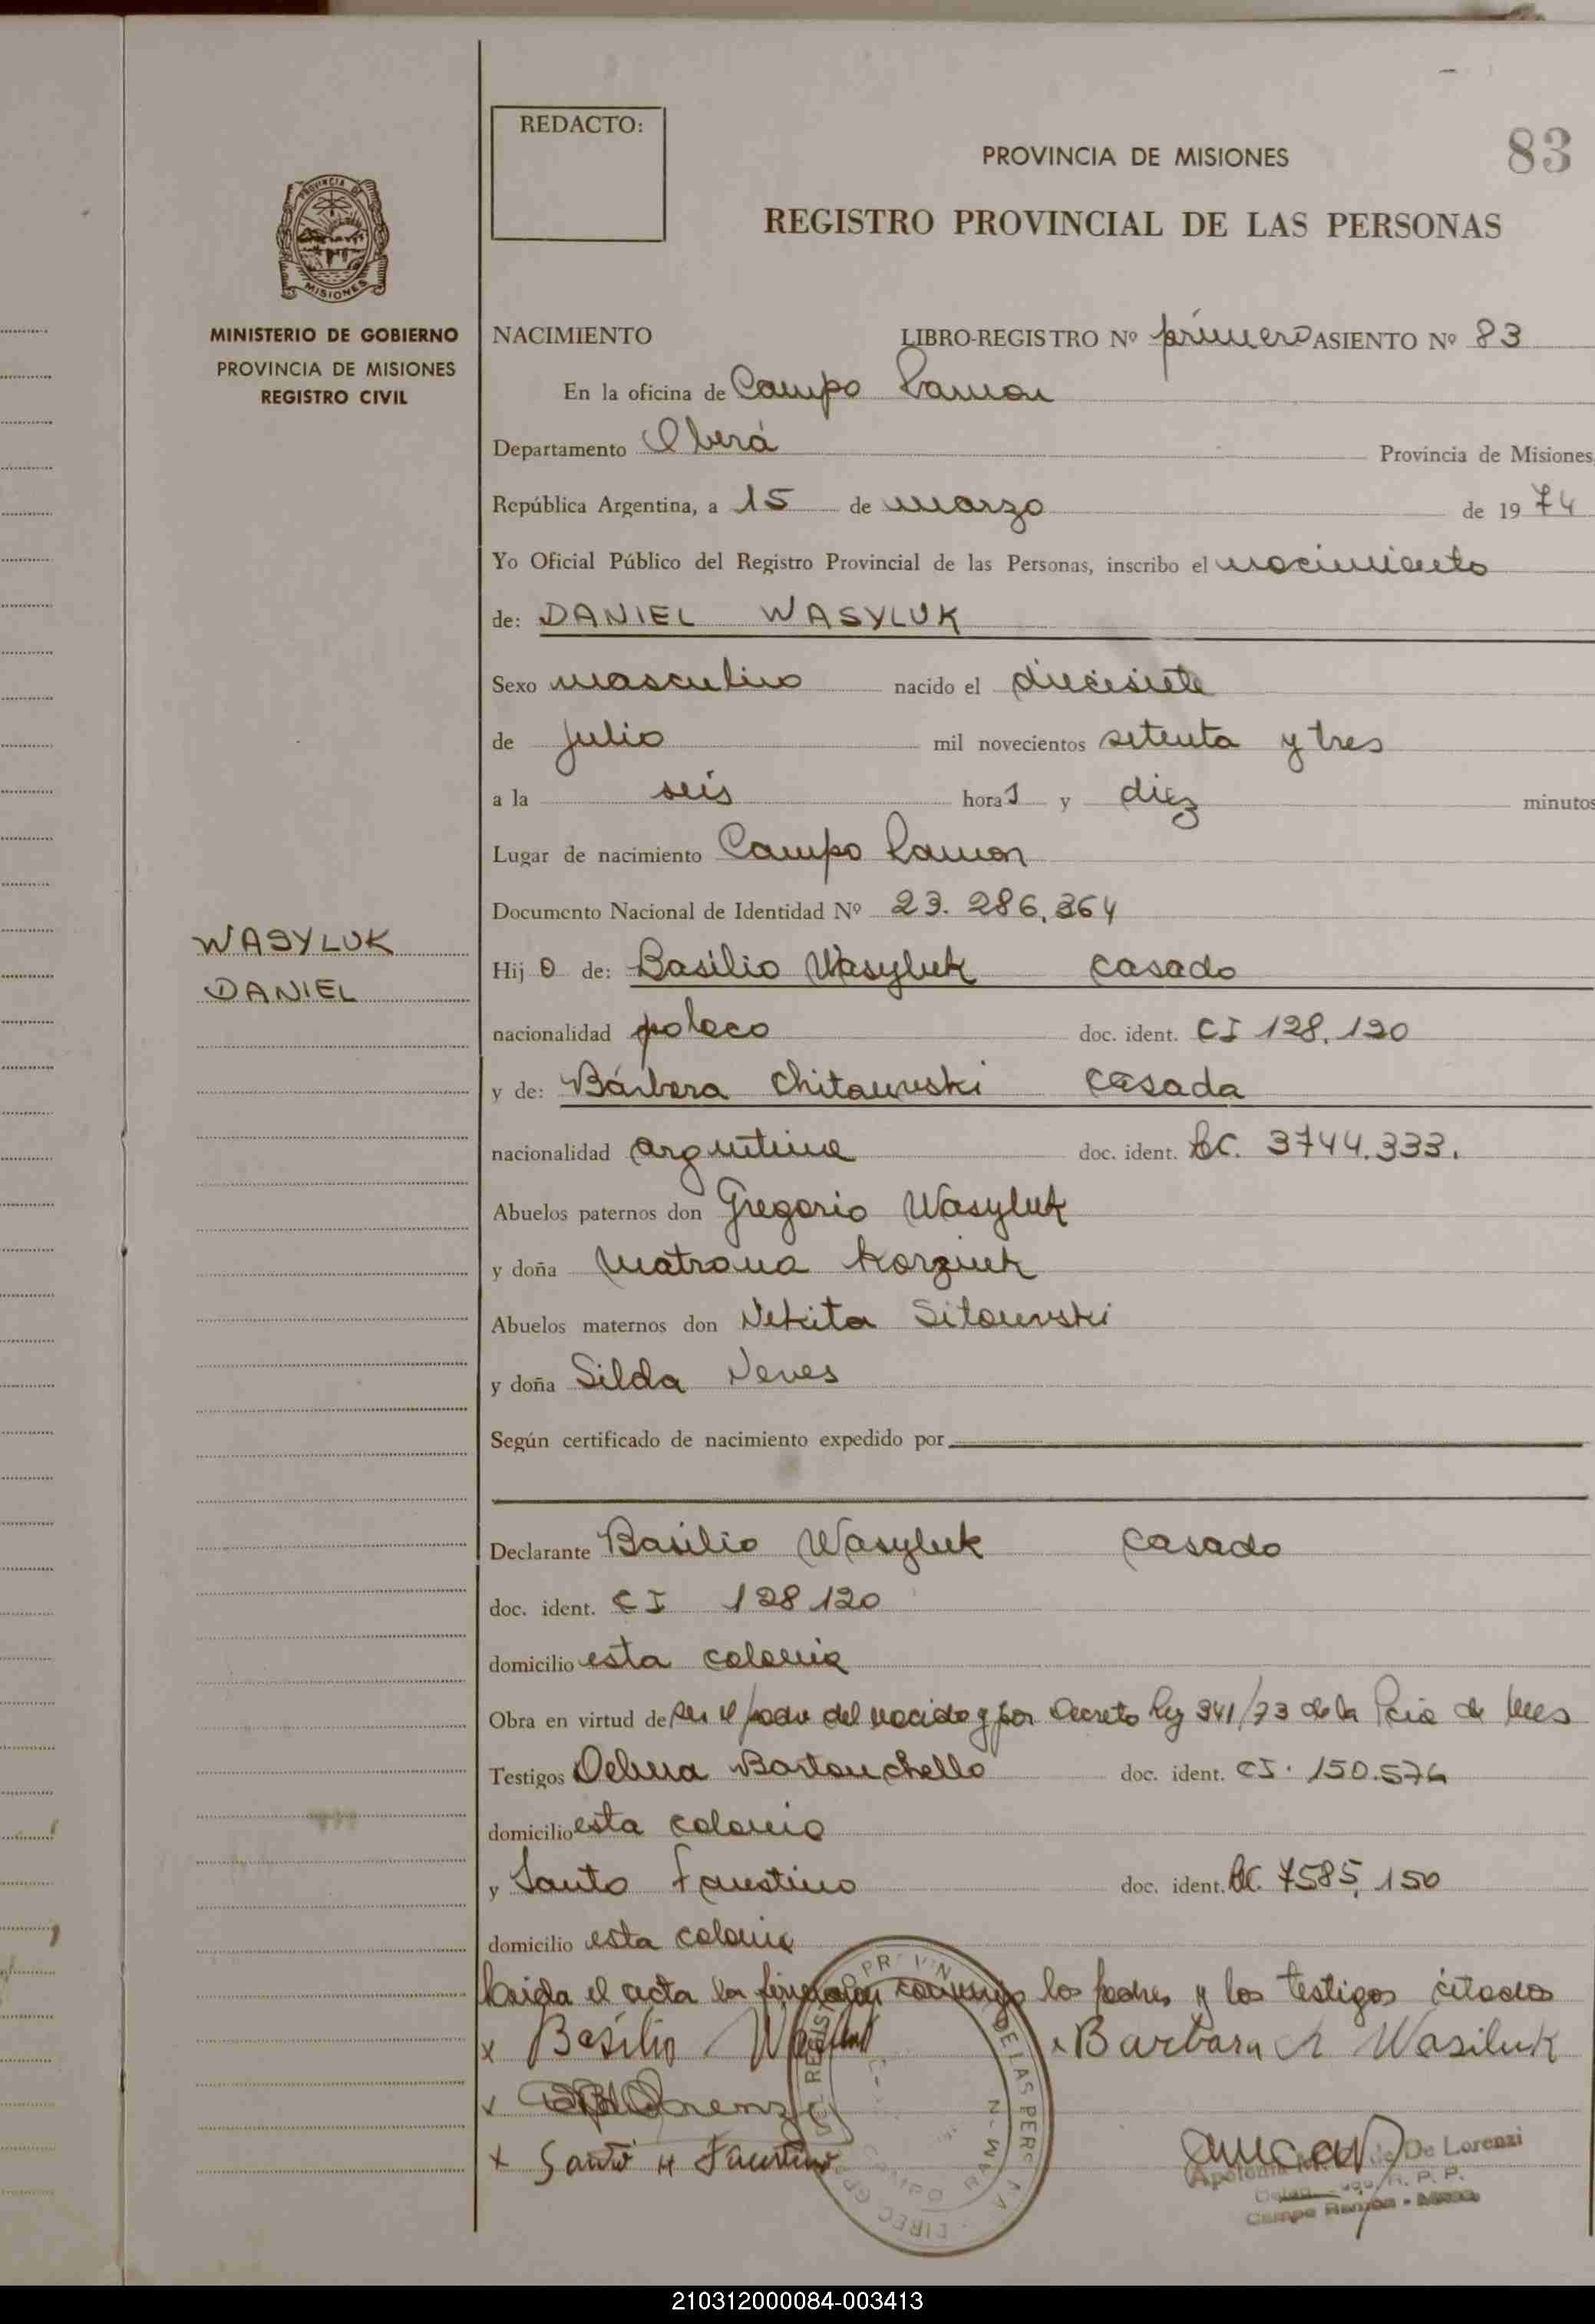 REDACTO:
PROVINCIA DE MISIONES
83
REGISTRO PROVINCIAL DE LAS PERSONAS
PROVINCIA DE
MISIONES
MINISTERIO DE GOBIERNO
PROVINCIA DE MISIONES
REGISTRO CIVIL
WASYLUK
DANIEL
NACIMIENTO LIBRO-REGISTRO Nº primero ASIENTO Nº 83
En la oficina de Campo Ramon
Departamento Oberá Provincia de Misiones
República Argentina, a 15 de marzo de 1974
Yo Oficial Público del Registro Provincial de las Personas, inscribo el nacimiento
de: DANIEL WASYLUK
Sexo masculino nacido el diecisiete
de julio mil novecientos setenta y tres
a la seis horas y diez minutos
Lugar de nacimiento Campo Ramon
Documento Nacional de Identidad Nº 23.286.364
Hijo de: Basilio Wasyluk casado
nacionalidad polaco doc. ident. CI 128.120
y de: Bárbara Chitawski casada
nacionalidad argentina doc. ident. LC. 3744.333.
Abuelos paternos don Gregorio Wasyluk
y doña Matrona Korziuk
Abuelos maternos don Nekita Sitawski
y doña Silda Neves
Según certificado de nacimiento expedido por
Declarante Basilio Wasyluk casado
doc. ident. CI 128120
domicilio esta colonia
Obra en virtud de ser el padre del nacido y por Decreto Ley 341/73 de la Pcia de Mes
Testigos Delma doc. ident. CI. 150.576
domicilio esta colonia
y Santo Faustino doc. ident. 7585.150
domicilio esta colonia
Leida el acta la firman conmigo los padres y los testigos citados
x Basilio x Barbara Wasiluk
x
x Santo Faustino
De Lorenzi
R. P. P.
Campo Ramón - Mnes.
210312000084-003413